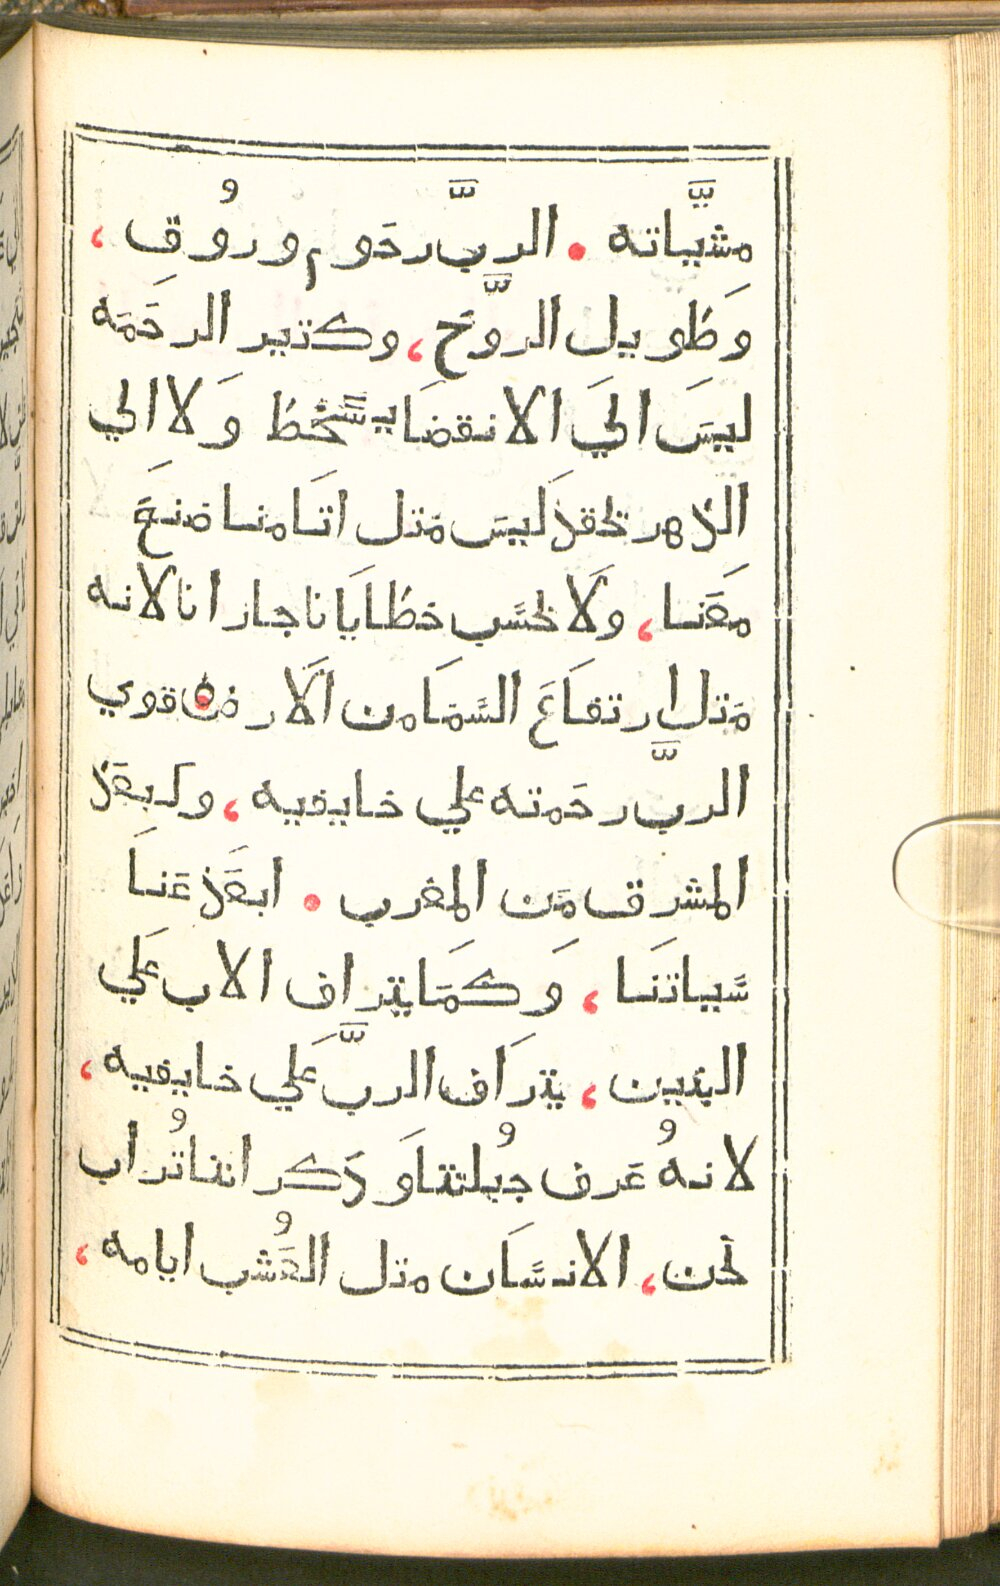 مشيَّاته . الربَّ رحَوم وروُف ،
وَطويل الروَّح ، وكتير الرحَمَه
ليسَ اليَ الانقضَا يسَّخْط وَلا الي
الدهر يحقد لَيسَ مَتل اتَامنا صَنعَ
معَنا ، ولَا يحسَب خطايَانا جازانا لانه
مَتل ارتفاَعَ السَمَا من الَارض قوي
الربَّ رحَمته علي خايفيه ، وكبعَد
المشرق مَن المغرب . ابعَد عَناَ
سَياتنَا ، وَكمَايتراف الاب عَلي
البنين ، يترَاف الربَّ عَلي خايفيه ،
لانهُ عَرف جبُلتنا وَ دَكر انناتُراب
نَحن ، الانسَان متل العَشُب ايامه ،